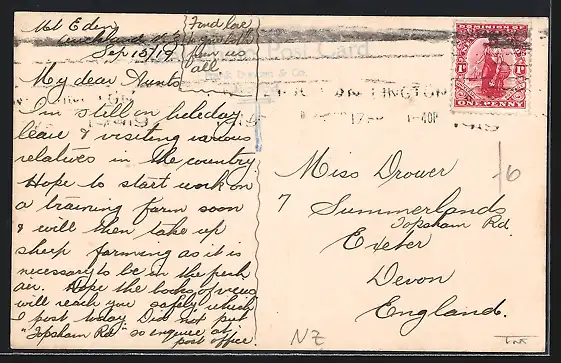 Mt Eden
Auckland N.Z.
Sep 15/19
Fond love
to you both
from us
all
My dear Aunts
I'm still on holiday
leave & visiting various
relatives in the country.
Hope to start work on
a training farm soon
& will then take up
sheep farming as it is
necessary to be in the fresh
air. Hope the books of views
will reach you safely which
I post today Did not put
"Topsham Rd" so enquire at
post office.
Post Card
& Co.
DOMINION OF
1D
1D
ONE PENNY
1919
1919
Miss Drower
7 Summerlands
Topsham Rd.
Exeter
Devon
England.
/6
NZ